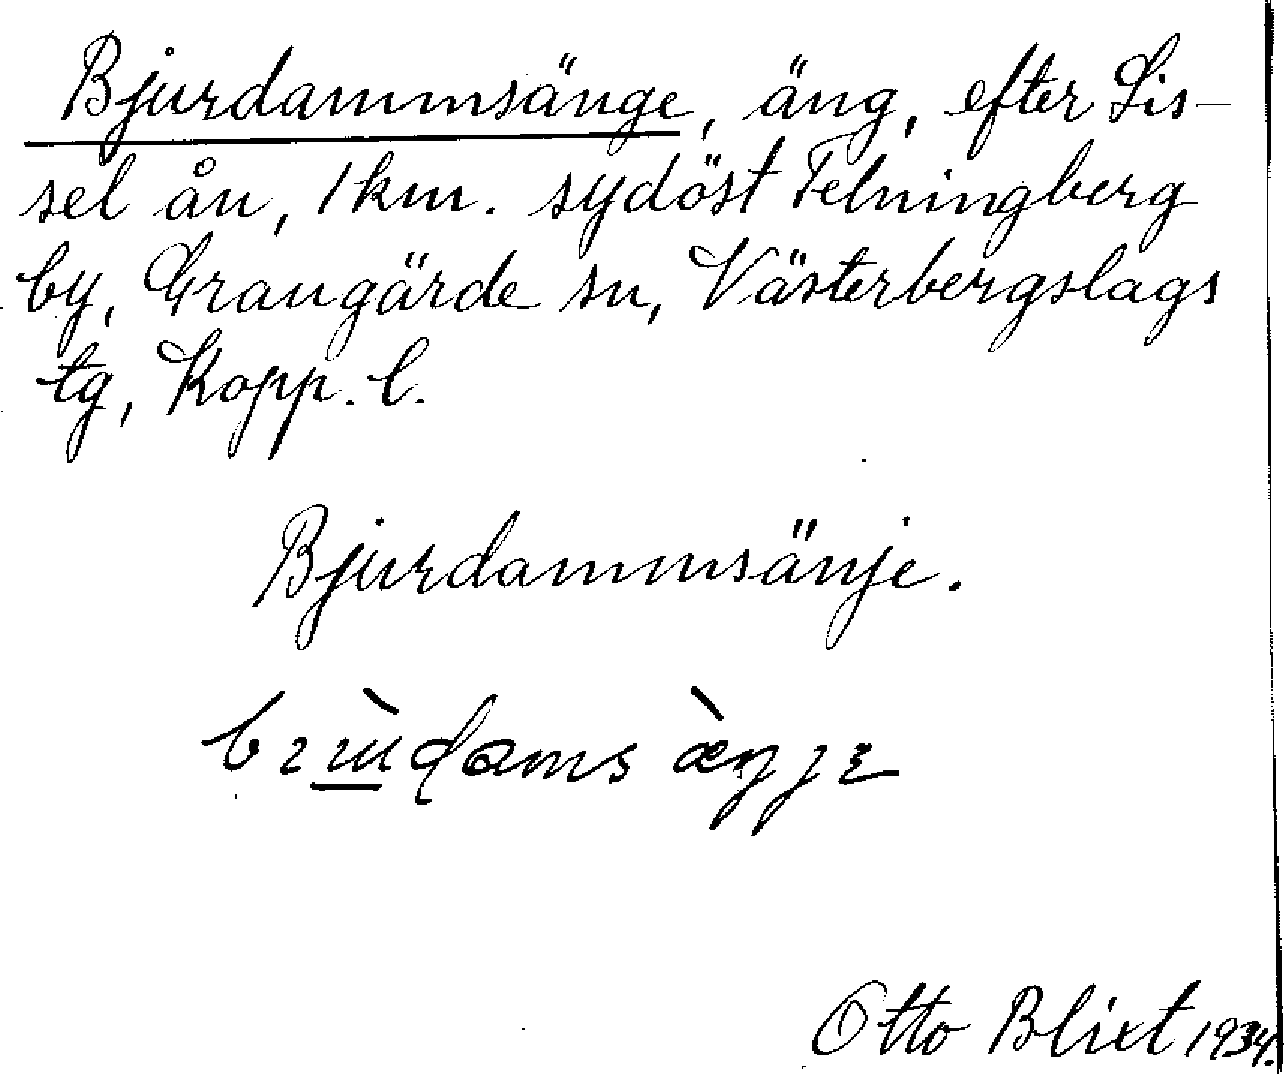 Bjurdammsänge, äng, efter Lis-
sel ån, 1 km. sydöst Felningberg
by, Grangärde sn, Västerbergslags
tg, Kopp. l.
Bjurdammsänje.
Otto Blixt 1934.